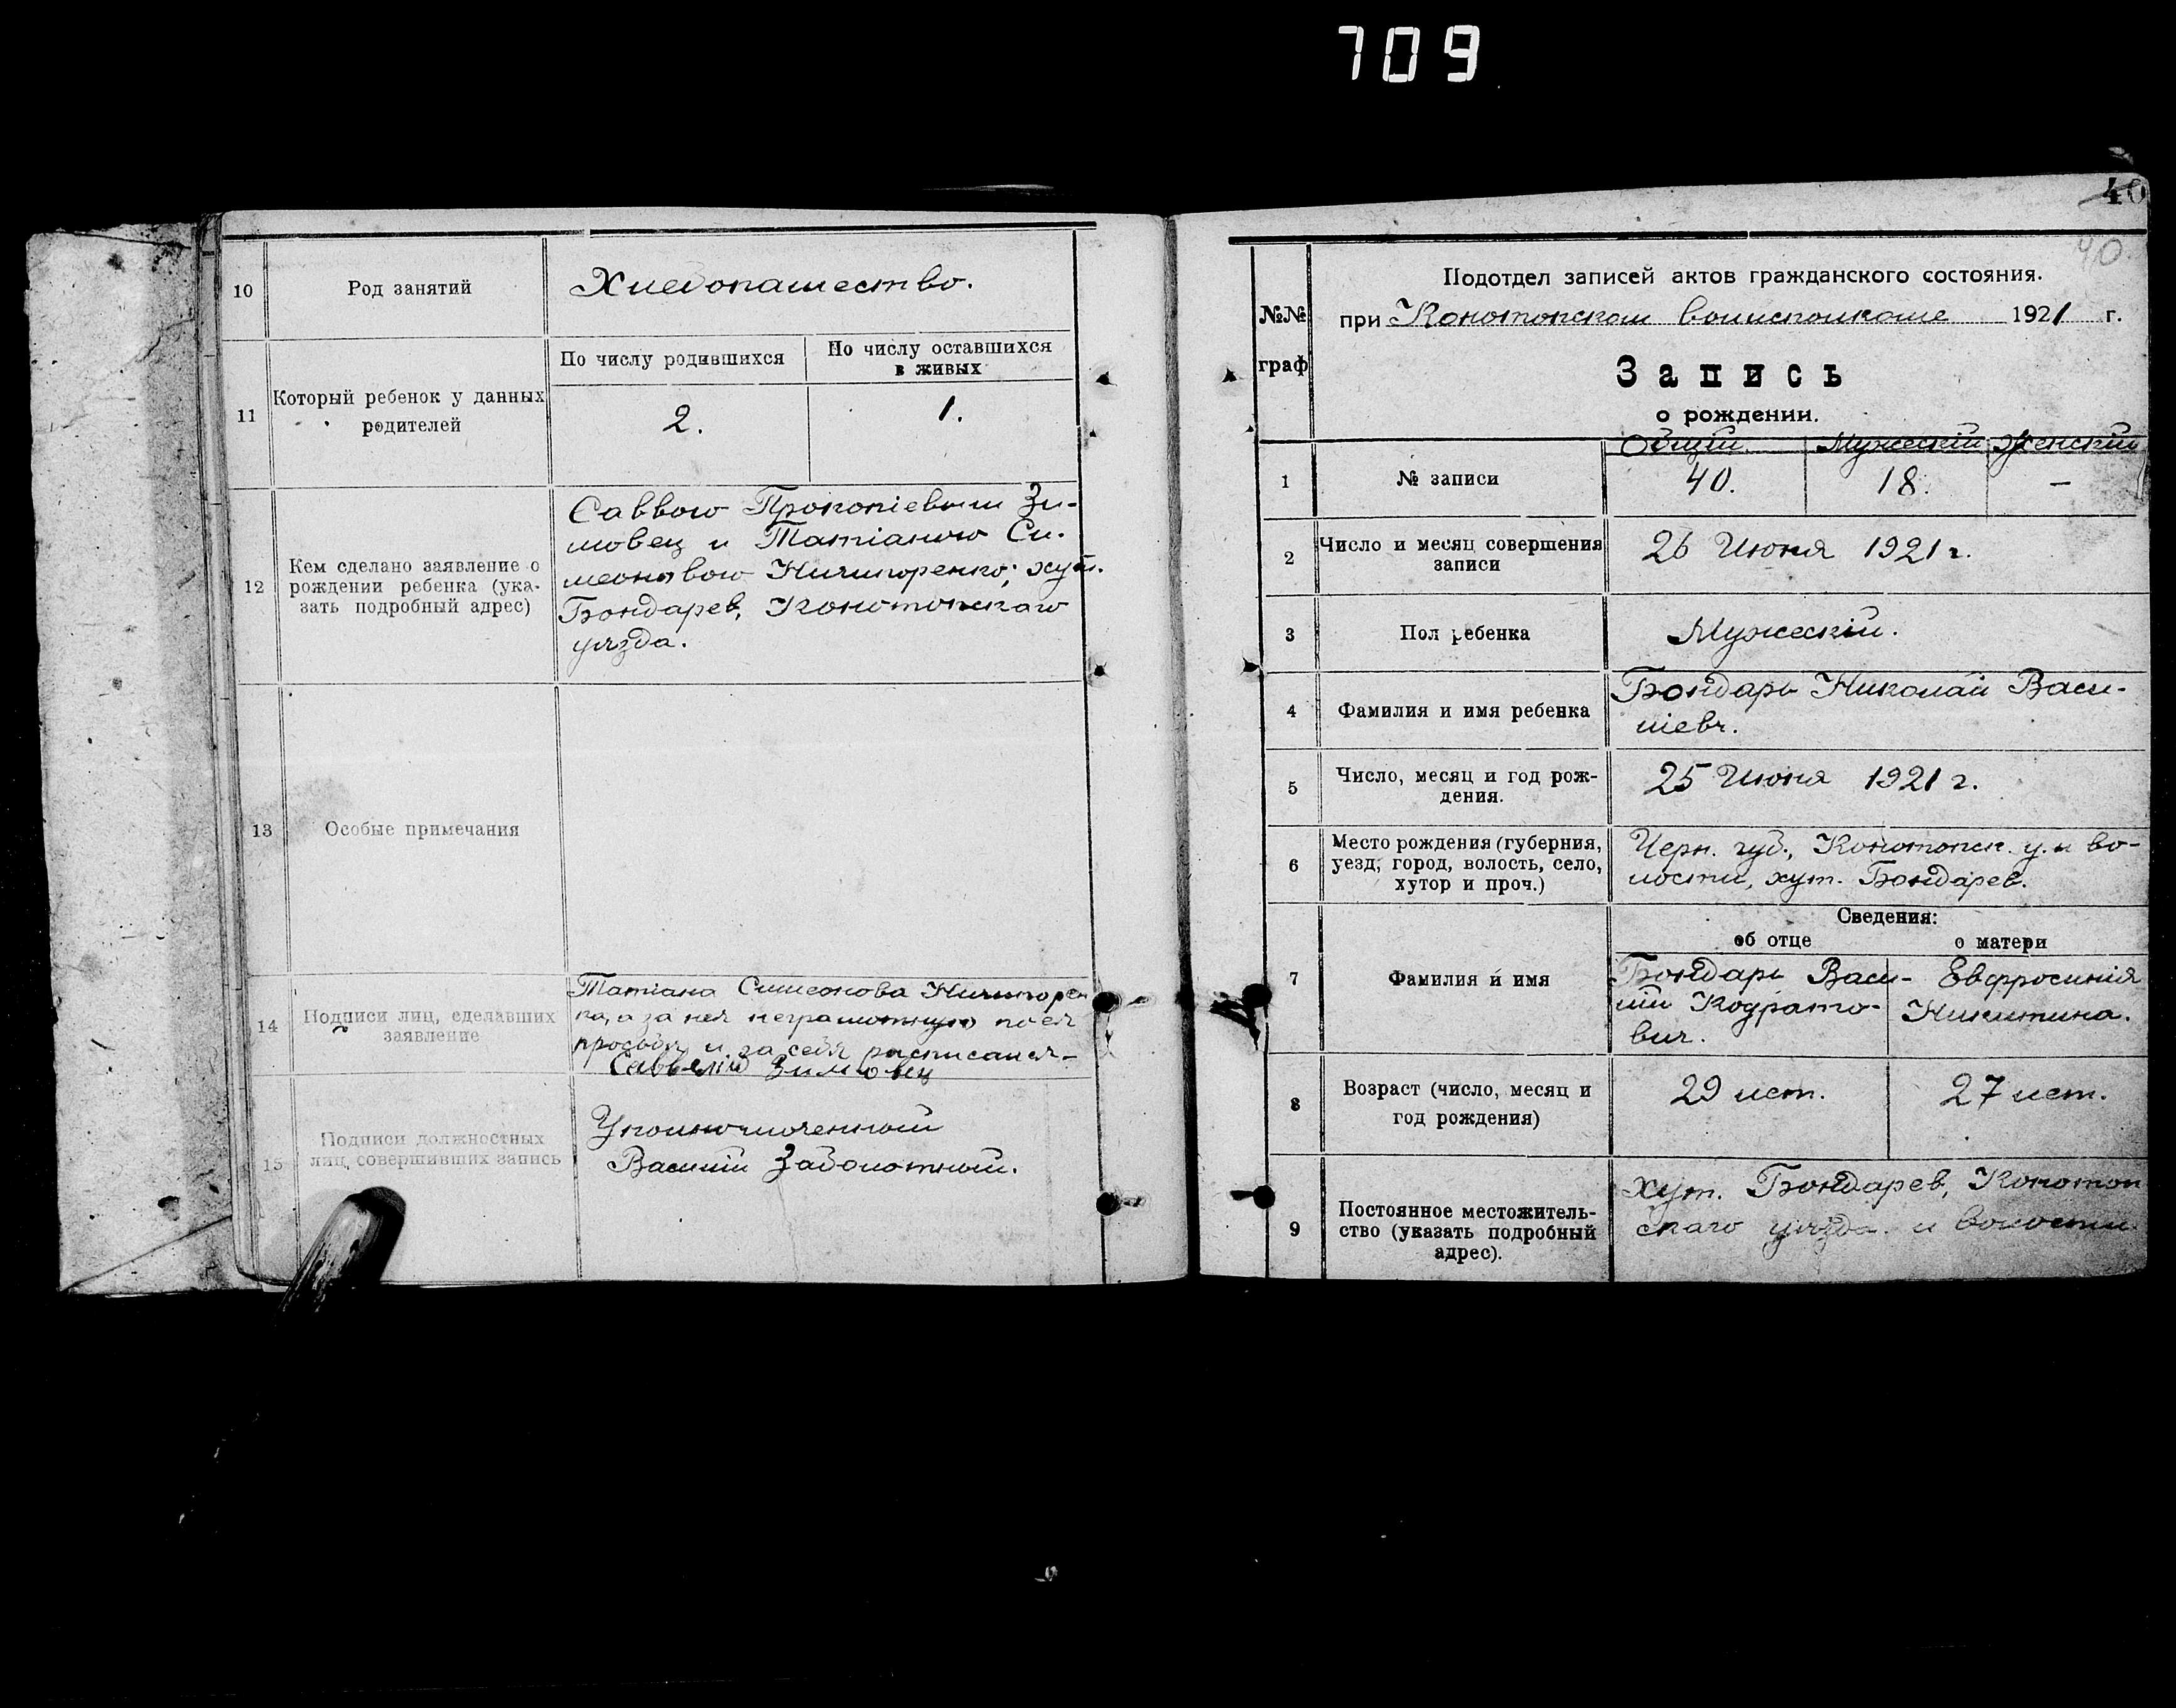 709
10 Род занятий Хлебопашество.
По числу родившихся По числу оставшихся
в живых
11 Который ребенок у данных
родителей
2. 1.
Саввою Прокопіевым Зи-
мовец и Татіаною Си-
12 Кем сделано заявление о
рождении ребенка (ука-
зать подробный адрес)
меоновою Ничипоренко; хут.
Бондарев, Конотопскаго
уѣзда.
13 Особые примечания
14 Подписи лиц, сделавших
заявление
Татіана Симеонова Ничипорен
ко, а за нея неграмотную по ея
просьбѣ и за себя расписался-
Савелій Зимовец
15 Подписи должностных
лиц, совершивших запись
Уполномоченный
Василий Заболотный.
40
40.
№№
граф
Подотдел записей актов гражданского состояния.
при Конотопском волисполкоме 1921 г.
Запись
о рождении.
Общий. Мужескій Женскій
1 № записи 40. 18. —
2 Число и месяц совершения
записи
26 Июня 1921 г.
3 Пол ребенка Мужескій.
4 Фамилия и имя ребенка
Бондарь Николай Васи-
лієвч.
5 Число, месяц и год рож-
дения.
25 Июня 1921 г.
6 Место рождения (губерния,
уезд, город, волость, село,
хутор и проч.)
Черн. губ., Конотопск. у. и во-
лости, хут. Бондарев.
Сведения:
об отце о матери
7 Фамилия и имя
Бондарь Васи-
лій Кодрато-
вич.
Евфросинія
Никитина.
8 Возраст (число, месяц и
год рождения)
29 лет. 27 лет.
9 Постоянное местожитель-
ство (указать подробный
адрес).
хут. Бондарев, Конотоп
скаго уѣзда и волости